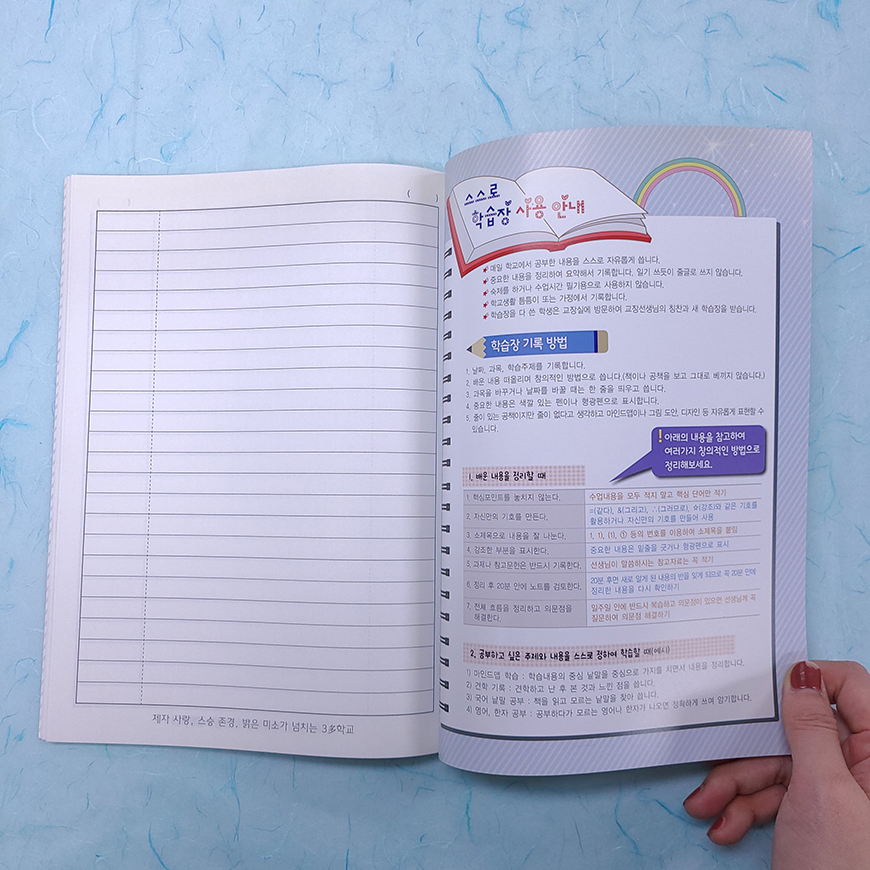 제자 사랑, 스승 존경, 밝은 미소가 넘치는 3多학교
스스로
학습장 사용 안내
매일 학교에서 공부한 내용을 스스로 자유롭게 씁니다.
중요한 내용을 정리하여 요약해서 기록합니다. 일기 쓰듯이 줄글로 쓰지 않습니다.
숙제를 하거나 수업시간 필기용으로 사용하지 않습니다.
학교생활 틈틈이 또는 가정에서 기록합니다.
학습장을 다 쓴 학생은 교장실에 방문하여 교장선생님의 칭찬과 새 학습장을 받습니다.
학습장 기록 방법
1. 날짜, 과목, 학습주제를 기록합니다.
2. 배운 내용 떠올리며 창의적인 방법으로 씁니다.(책이나 공책을 보고 그대로 베끼지 않습니다.)
3. 과목을 바꾸거나 날짜를 바꿀 때는 한 줄을 띄우고 씁니다.
4. 중요한 내용은 색깔 있는 펜이나 형광펜으로 표시합니다.
5. 줄이 있는 공책이지만 줄이 없다고 생각하고 마인드맵이나 그림 도안, 디자인 등 자유롭게 표현할 수
있습니다.
! 아래의 내용을 참고하여
여러가지 창의적인 방법으로
정리해보세요.
1. 배운 내용을 정리할 때
1. 핵심포인트를 놓치지 않는다. 수업내용을 모두 적지 말고 핵심 단어만 적기
2. 자신만의 기호를 만든다. =(같다), &(그리고), ∴(그러므로), ☆(강조)와 같은 기호를
활용하거나 자신만의 기호를 만들어 사용
3. 소제목으로 내용을 잘 나눈다. 1, 1), (1), ① 등의 번호를 이용하여 소제목을 붙임
4. 강조한 부분을 표시한다. 중요한 내용은 밑줄을 긋거나 형광펜으로 표시
5. 과제나 참고문헌은 반드시 기록한다. 선생님이 말씀하시는 참고자료는 꼭 적기
6. 정리 후 20분 안에 노트를 검토한다. 20분 후면 새로 알게 된 내용의 반을 잊게 되므로 꼭 20분 안에
정리한 내용을 다시 확인하기
7. 전체 흐름을 정리하고 의문점을
해결한다. 일주일 안에 반드시 복습하고 의문점이 있으면 선생님께 꼭
질문하여 의문점 해결하기
2. 공부하고 싶은 주제와 내용을 스스로 정하여 학습할 때(예시)
1) 마인드맵 학습 : 학습내용의 중심 낱말을 중심으로 가지를 치면서 내용을 정리합니다.
2) 견학 기록 : 견학하고 난 후 본 것과 느낀 점을 씁니다.
3) 국어 낱말 공부 : 책을 읽고 모르는 낱말을 찾아 씁니다.
4) 영어, 한자 공부 : 공부하다가 모르는 영어나 한자가 나오면 정확하게 쓰며 암기합니다.